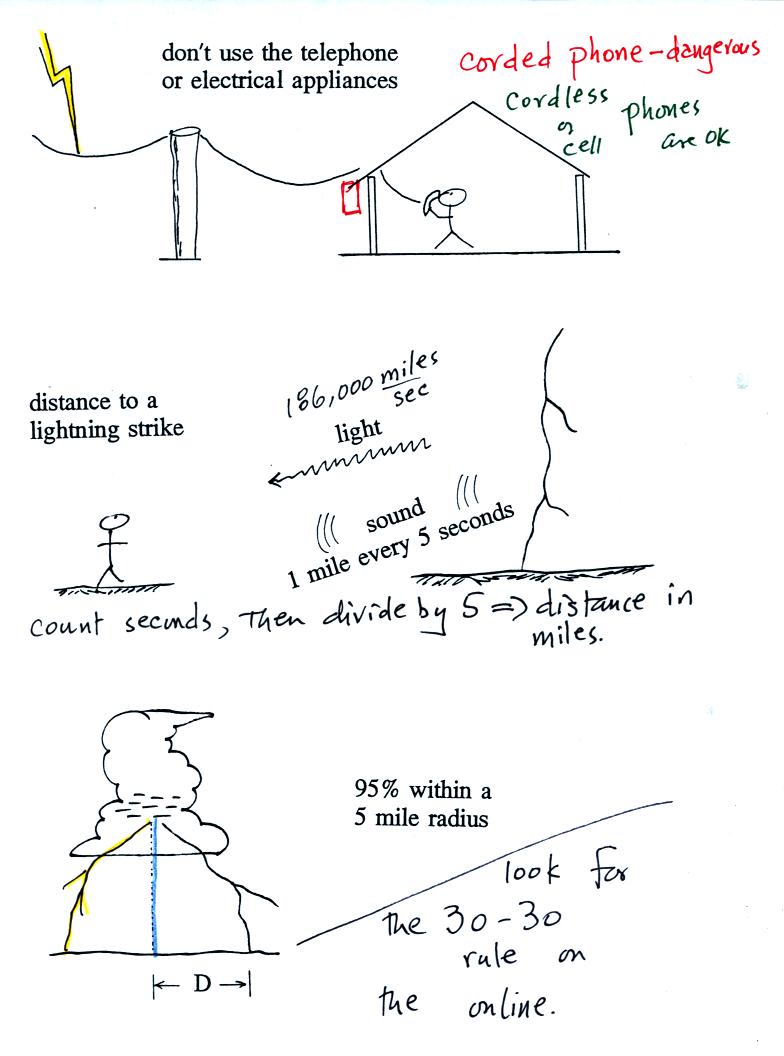 don't use the telephone
or electrical appliances
corded phone-dangerous
cordless
or
cell
phones
are OK
distance to a
lightning strike
186,000 miles
sec
light
sound
1 mile every 5 seconds
count seconds, then divide by 5 => distance in
miles.
95% within a
5 mile radius
look for
the 30-30
rule on
the online.
D